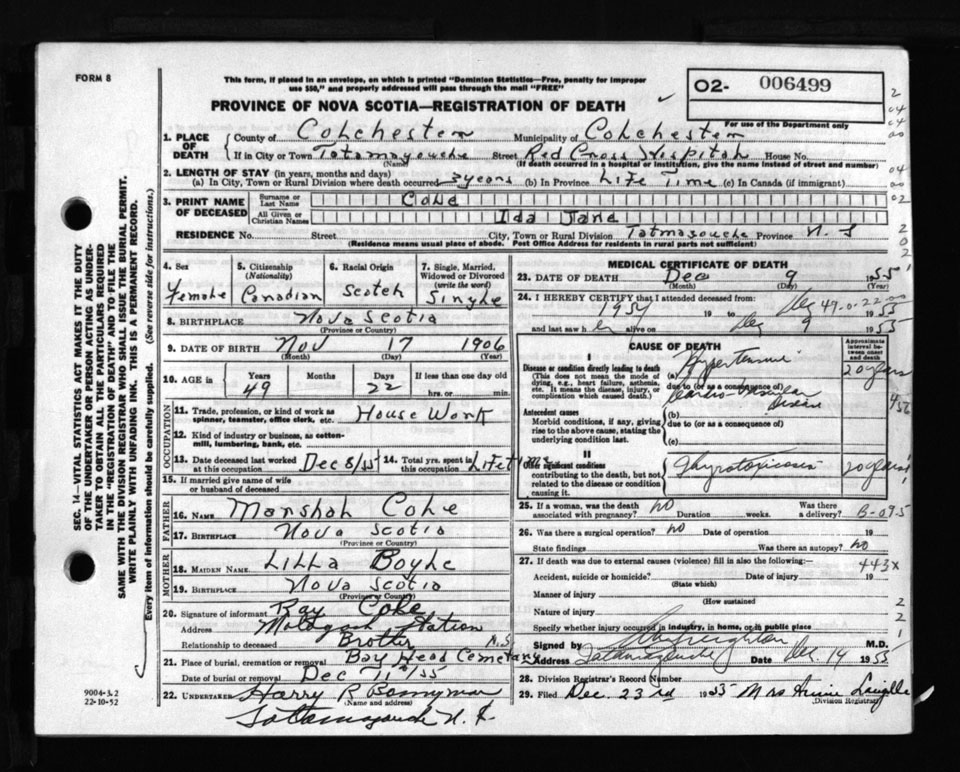 FORM 8
This form, if placed in an envelope, on which is printed "Dominion Statistics—Free, penalty for improper
use $50," and properly addressed will pass through the mail "FREE"
O2- 006499
For use of the Department only
PROVINCE OF NOVA SCOTIA—REGISTRATION OF DEATH
1. PLACE OF DEATH
County of Colchester Municipality of Colchester
If in City or Town Tatamagouche Street Red Cross Hospital House No.
(Name) (If death occurred in a hospital or institution, give the name instead of street and number)
2. LENGTH OF STAY (in years, months and days)
(a) In City, Town or Rural Division where death occurred 3 years (b) In Province Life Time (c) In Canada (if immigrant)
3. PRINT NAME OF DECEASED
Surname or Last Name Cole
All Given or Christian Names Ida Jane
RESIDENCE No. Street City, Town or Rural Division Tatmagouche Province N.S
(Residence means usual place of abode. Post Office Address for residents in rural parts not sufficient)
4. Sex Female
5. Citizenship (Nationality) Canadian
6. Racial Origin Scotch
7. Single, Married, Widowed or Divorced (write the word) Single
8. BIRTHPLACE Nova Scotia
(Province or Country)
9. DATE OF BIRTH Nov 17 1906
(Month) (Day) (Year)
10. AGE in Years 49 Months Days 22 If less than one day old hrs. or min.
OCCUPATION
11. Trade, profession, or kind of work as spinner, teamster, office clerk, etc. House Work
12. Kind of industry or business, as cotton-mill, lumbering, bank, etc.
13. Date deceased last worked at this occupation Dec 8/55
14. Total yrs. spent in this occupation Life time
15. If married give name of wife or husband of deceased
FATHER
16. NAME Marshal Cole
17. BIRTHPLACE Nova Scotia
(Province or Country)
MOTHER
18. MAIDEN NAME Lilla Boyle
19. BIRTHPLACE Nova Scotia
(Province or Country)
20. Signature of informant Ray Cole
Address Malagash Station
Relationship to deceased Brother N.S
21. Place of burial, cremation or removal Bay Head Cemetary
Date of burial or removal Dec 11th/55
22. UNDERTAKER Harry R Bonnyman
(Name and address)
Tatamagouche N.S.
MEDICAL CERTIFICATE OF DEATH
23. DATE OF DEATH Dec 9 1955
(Month) (Day) (Year)
24. I HEREBY CERTIFY that I attended deceased from:
1954 19 to Dec 1955
49-0-22-00
and last saw her alive on Dec 9 1955
CAUSE OF DEATH
Approximate interval between onset and death
I
Disease or condition directly leading to death (a) Hypertensive 20 years
(This does not mean the mode of dying, e.g., heart failure, asthenia, etc. It means the disease, injury, or complication which caused death.)
due to (or as a consequence of)
Cardio-Vascular Disease
Antecedent causes (b)
Morbid conditions, if any, giving rise to the above cause, stating the underlying condition last.
due to (or as a consequence of)
(c)
II
Other significant conditions Thyrotoxicosis 20 years
contributing to the death, but not related to the disease or condition causing it.
25. If a woman, was the death associated with pregnancy? NO Duration weeks. Was there a delivery?
B-09-5
26. Was there a surgical operation? NO Date of operation 19
State findings Was there an autopsy? NO
27. If death was due to external causes (violence) fill in also the following:—
443X
Accident, suicide or homicide? Date of injury 19
(State which)
Manner of injury
(How sustained
Nature of injury
Specify whether injury occurred in industry, in home, or in public place
Signed by M.D.
Address Tatamagouche Date Dec. 14 1955
28. Division Registrar's Record Number
29. Filed Dec. 23rd 1955 Mrs Annie
(Division Registrar)
SEC. 14—VITAL STATISTICS ACT MAKES IT THE DUTY
OF THE UNDERTAKER OR PERSON ACTING AS UNDER-
TAKER TO OBTAIN ALL THE PARTICULARS REQUIRED
IN THE "REGISTRATION OF DEATH" AND TO FILE THE
SAME WITH THE DIVISION REGISTRAR WHO SHALL ISSUE THE BURIAL PERMIT.
WRITE PLAINLY WITH UNFADING INK. THIS IS A PERMANENT RECORD.
Every item of information should be carefully supplied. (See reverse side for instructions.)
9004-3.2
22-10-52